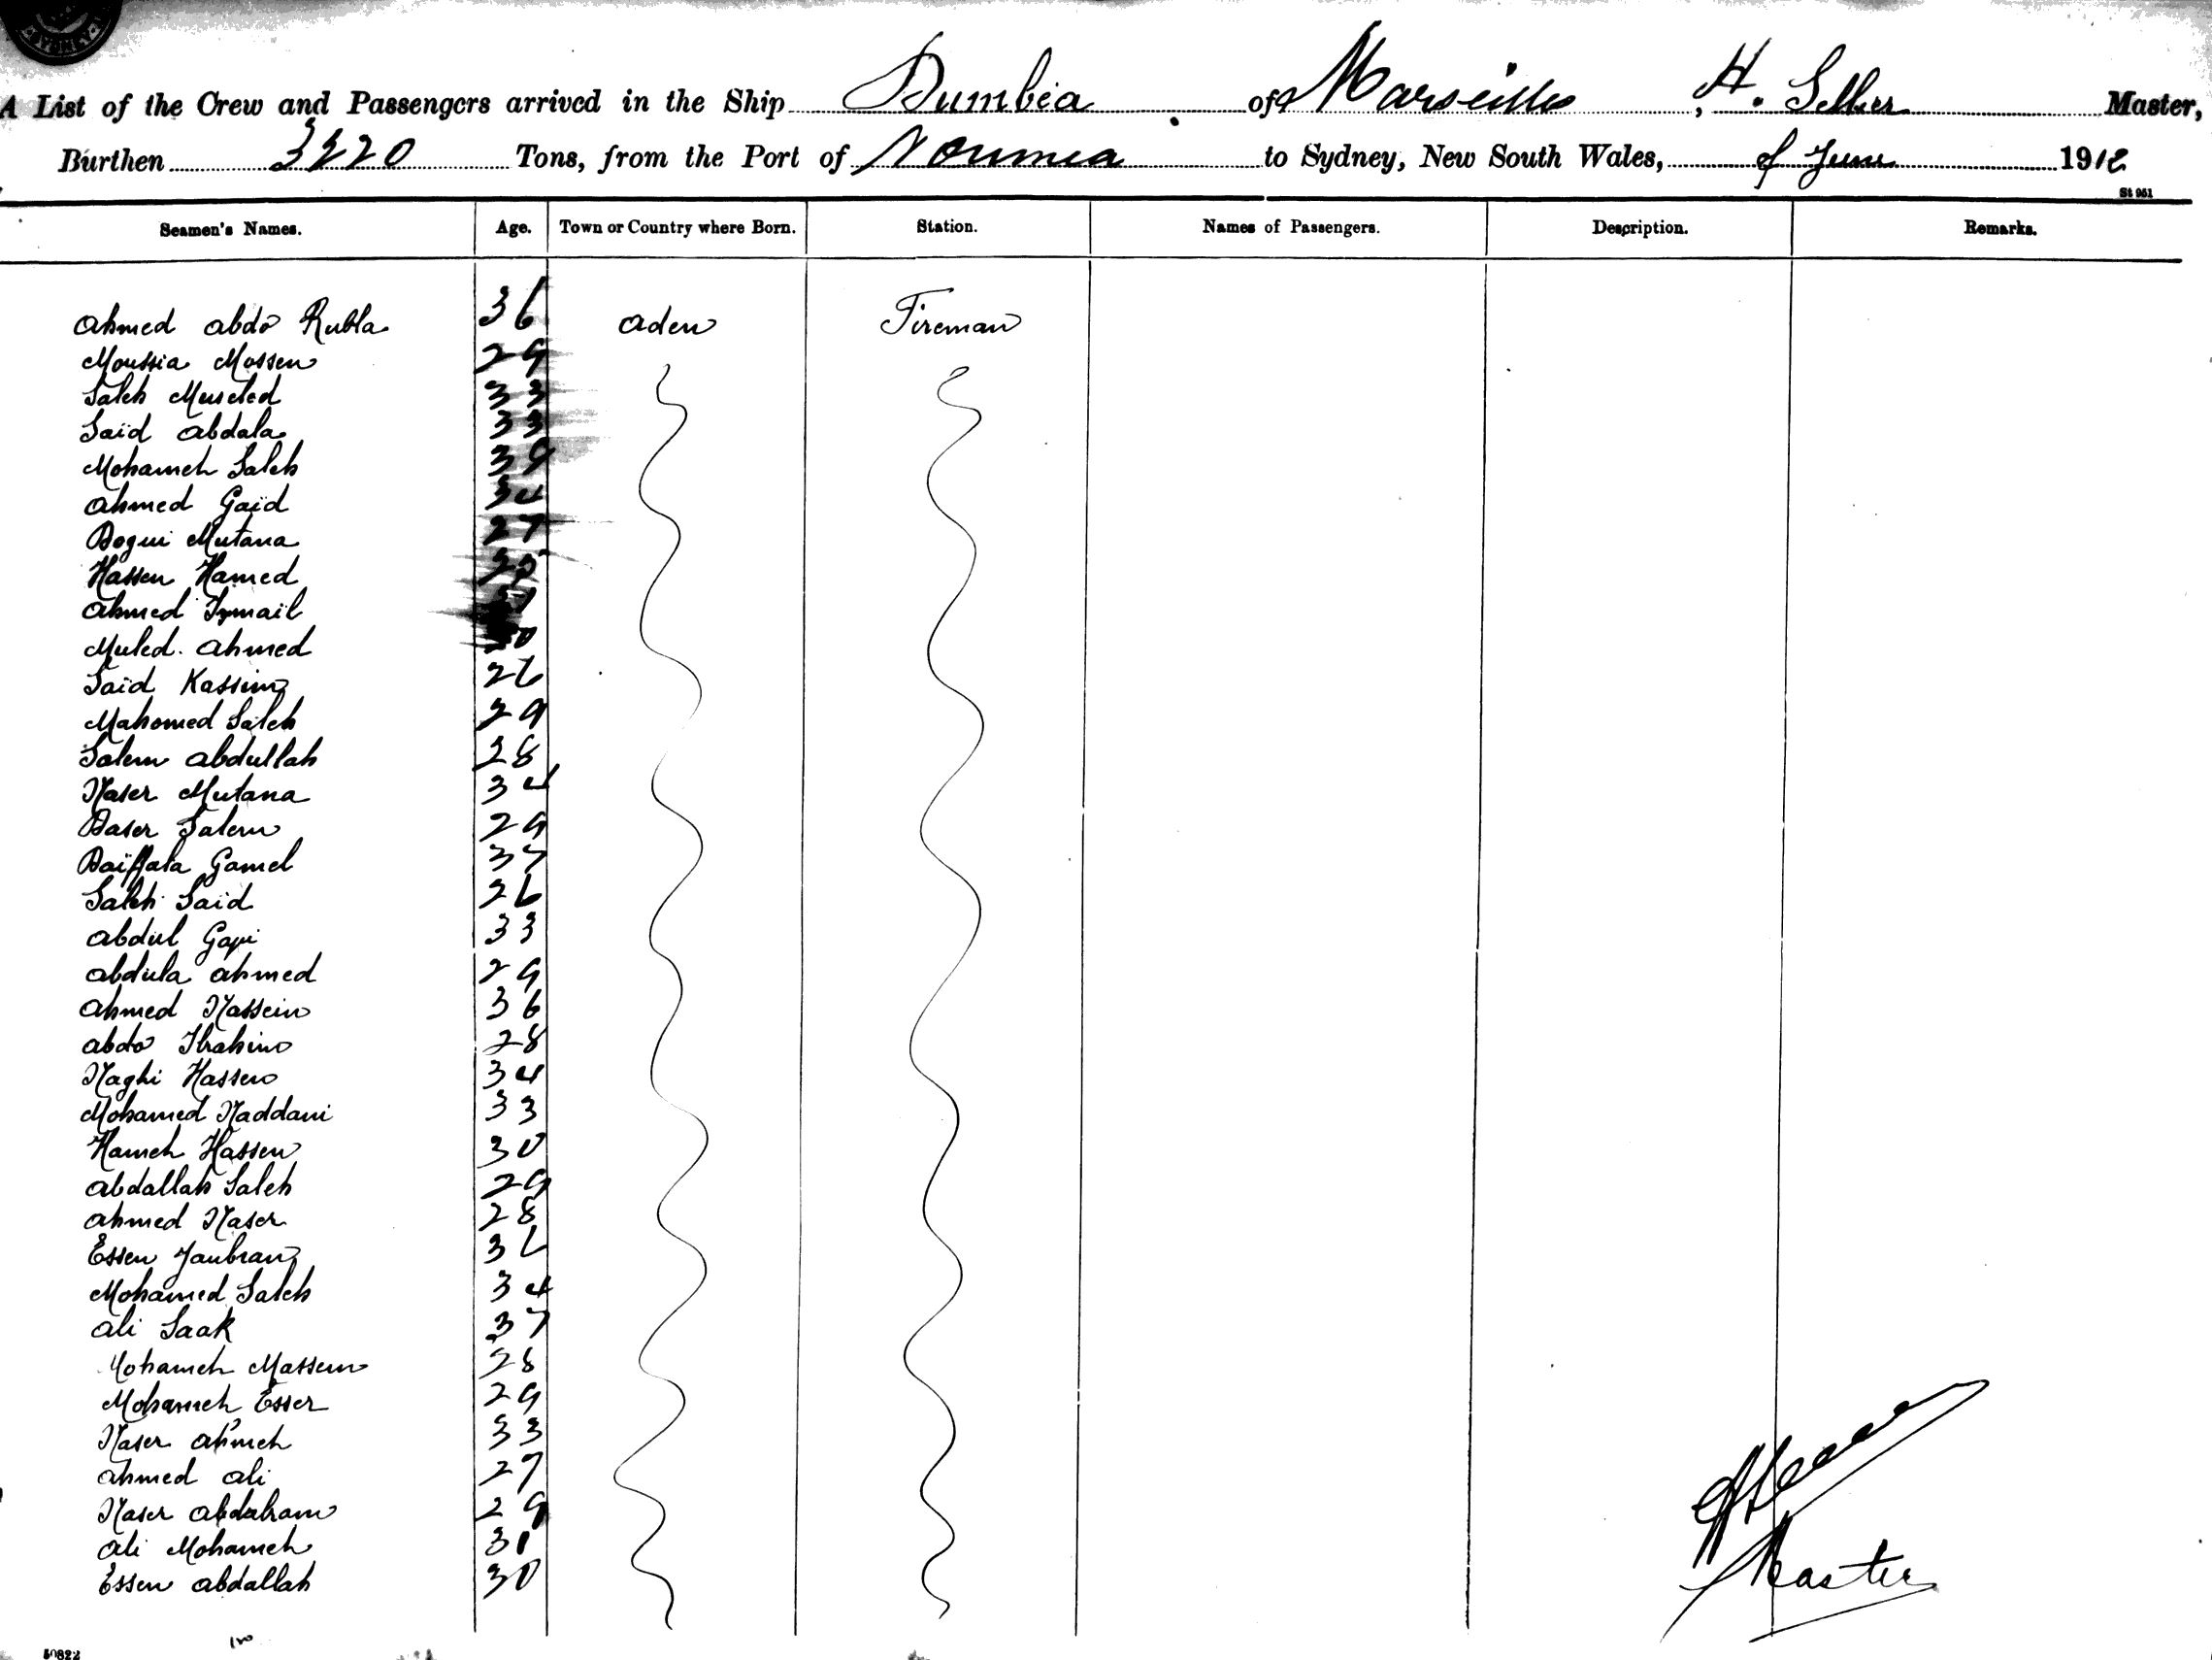 A List of the Crew and Passengers arrived in the Ship Dumbea of Marseilles, H. Sellier Master,
Burthen 3220 Tons, from the Port of Noumea to Sydney, New South Wales, of June 1912
St 951
Seamen's Names. Age. Town or Country where Born. Station. Names of Passengers. Description. Remarks.
Ahmed Abdo Rubla 36 Aden Fireman
Moussia Mossen 29
Saleh Museled 33
Saïd Abdala 33
Mohameh Saleh 39
Ahmed Gaïd 34
Dogui Mutana 27
Hassen Hamed
Ahmed Ismaïl
Muled Ahmed
Saïd Kassim 26
Mahomed Saleh 29
Salem Abdullah 28
Naser Mutana 34
Daser Salem 29
Daïffala Gamel 37
Saleh Saïd 26
Abdul Gapi 33
Abdula Ahmed 29
Ahmed Nassein 36
Abdo Ibrahim 28
Naghi Hassen 34
Mohamed Naddani 33
Hameh Hassen 30
Abdallah Saleh 29
Ahmed Naser 28
Essen Jaubran 36
Mohamed Saleh 34
Ali Saak 37
Mohameh Massem 28
Mohameh Esser 29
Naser Ahmeh 33
Ahmed Ali 27
Naser Abdaham 29
Ali Mohameh 31
Essen Abdallah 30
Master
50822